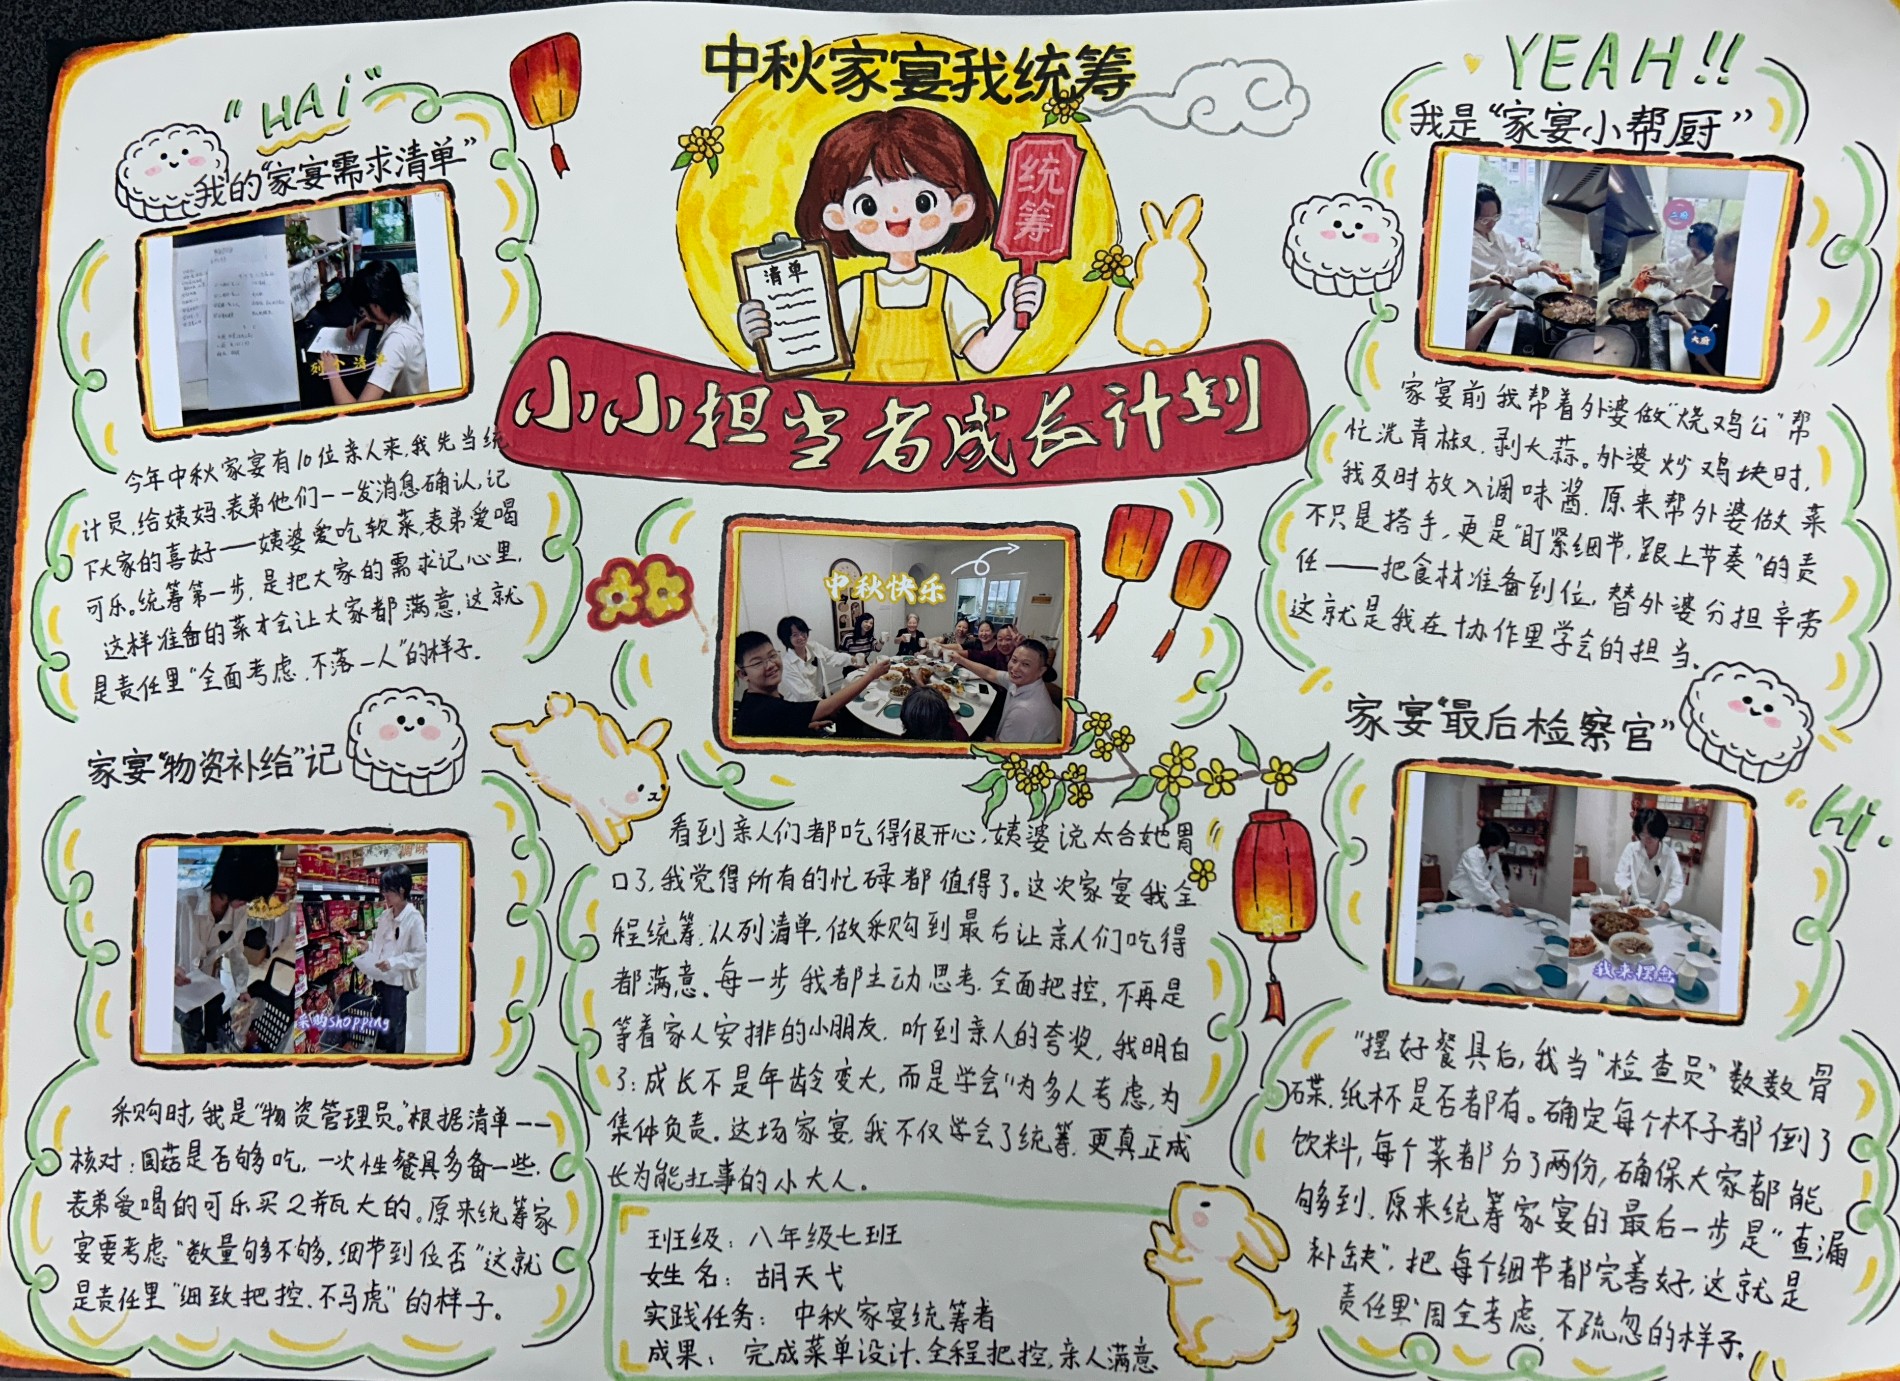 中秋家宴我统筹
统筹
清单
小小担当者成长计划
"HAi"
我的"家宴需求清单"
列个清单
今年中秋家宴有10位亲人来,我先当统
计员,给姨妈、表弟他们一一发消息确认,记
下大家的喜好——姨婆爱吃软菜,表弟爱喝
可乐。统筹第一步,是把大家的需求记心里,
这样准备的菜才会让大家都满意,这就
是责任里"全面考虑,不落一人"的样子.
家宴"物资补给"记
采购shopping
采购时,我是"物资管理员。"根据清单一一
核对:口菇是否够吃,一次性餐具多备一些,
表弟爱喝的可乐买2瓶大的。原来统筹家
宴要考虑"数量够不够,细节到位否"这就
是责任里"细致把控、不马虎"的样子。
中秋快乐
看到亲人们都吃得很开心,姨婆说太合她胃
口了,我觉得所有的忙碌都值得了。这次家宴我全
程统筹,从列清单,做采购到最后让亲人们吃得
都满意。每一步我都主动思考,全面把控,不再是
等着家人安排的小朋友.听到亲人的夸奖,我明白
了:成长不是年龄变大,而是学会"为多人考虑,为
集体负责。这场家宴,我不仅学会了统筹,更真正成
长为能扛事的小大人。
班级:八年级七班
姓名:胡天弋
实践任务:中秋家宴统筹者
成果:完成菜单设计、全程把控,亲人满意
YEAH!!
我是"家宴小帮厨"
二厨
大厨
家宴前我帮着外婆做"烧鸡公"帮
忙洗青椒、剥大蒜。外婆炒鸡块时,
我及时放入调味酱.原来帮外婆做菜
不只是搭手,更是"盯紧细节,跟上节奏"的责
任——把食材准备到位,替外婆分担辛劳
这就是我在协作里学会的担当。
家宴"最后检察官"
Hi.
我来摆盘
"摆好餐具后,我当"检查员"数数骨
碟、纸杯是否都有。确定每个杯子都倒了
饮料,每个菜都分了两份,确保大家都能
够到.原来统筹家宴的最后一步是"查漏
补缺",把每个细节都完善好,这就是
责任里"周全考虑,不疏忽的样子。